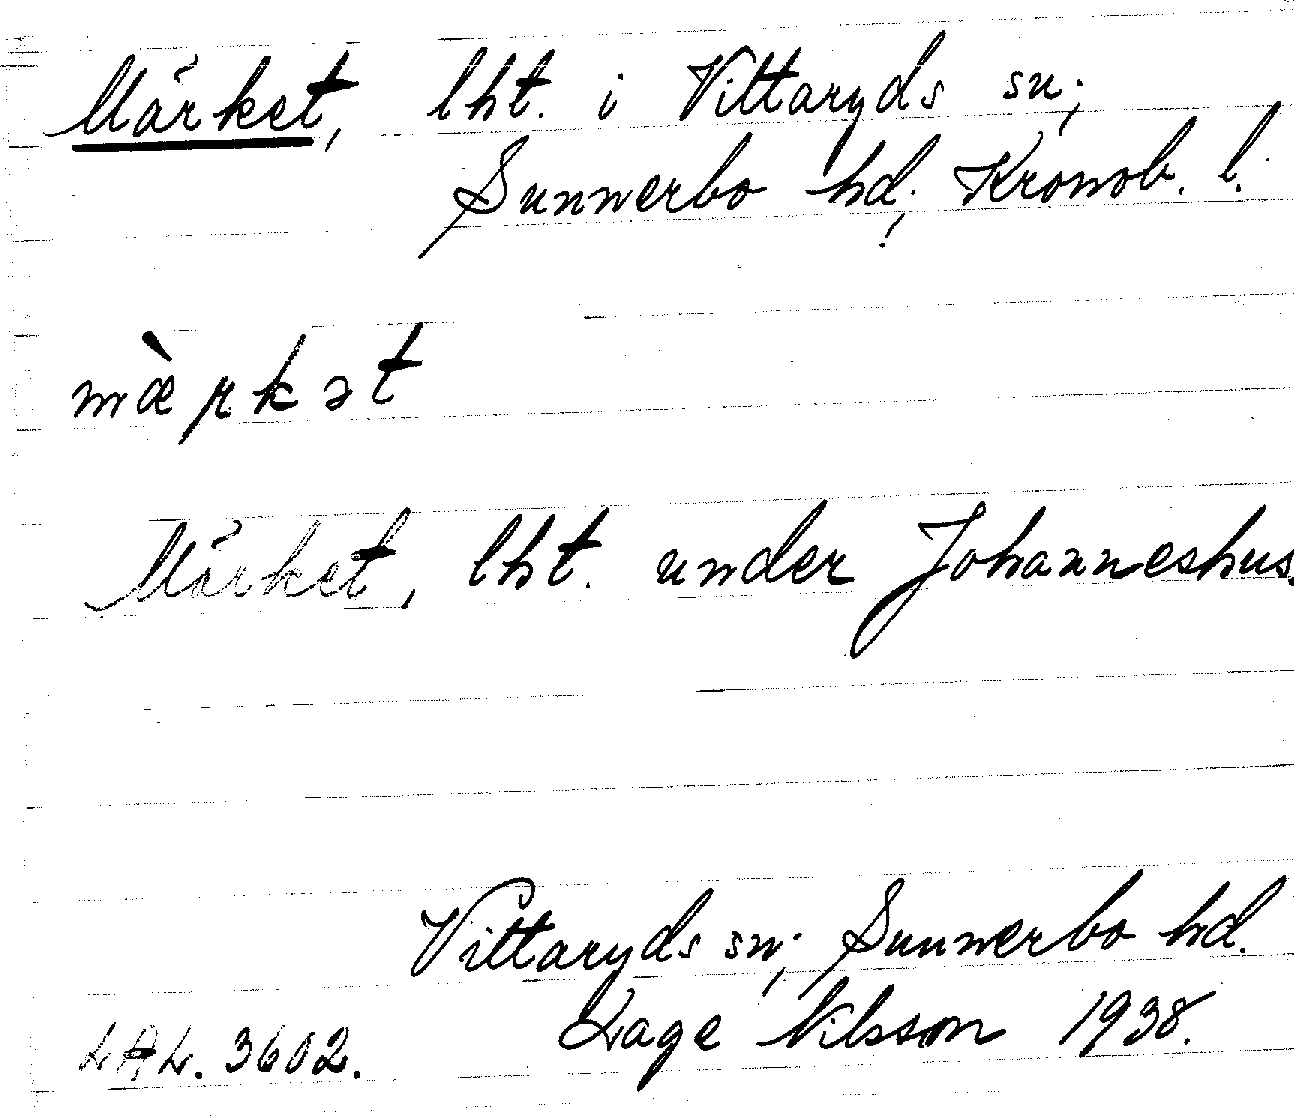 Märket, lht. i Vittaryds sn;
Sunnerbo hd; Kronob. l.
mæ̀rkət
Märket, lht. under Johanneshus.
Vittaryds sn; Sunnerbo hd.
LAL. 3602. Lage Nilsson 1938.